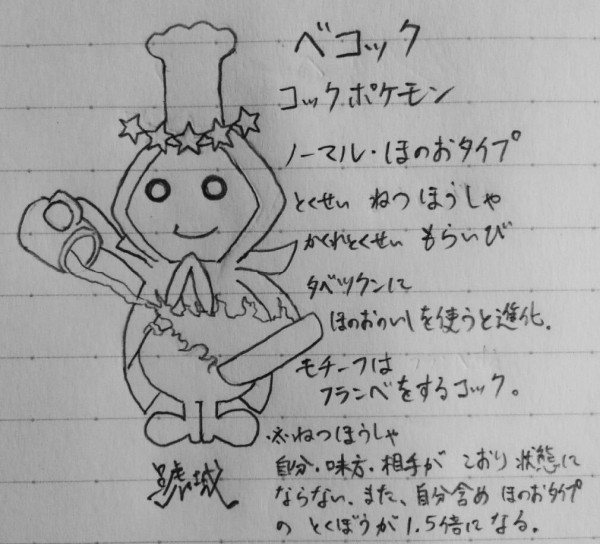 ベコック
コックポケモン
ノーマル・ほのおタイプ
とくせい ねつほうしゃ
かくれとくせい もらいび
タベックンに
ほのおのいしを使うと進化.
モチーフは
フランベをするコック。
※ねつほうしゃ
自分・味方・相手が こおり状態に
ならない. また、自分含め ほのおタイプ
の とくぼうが1.5倍になる.
城